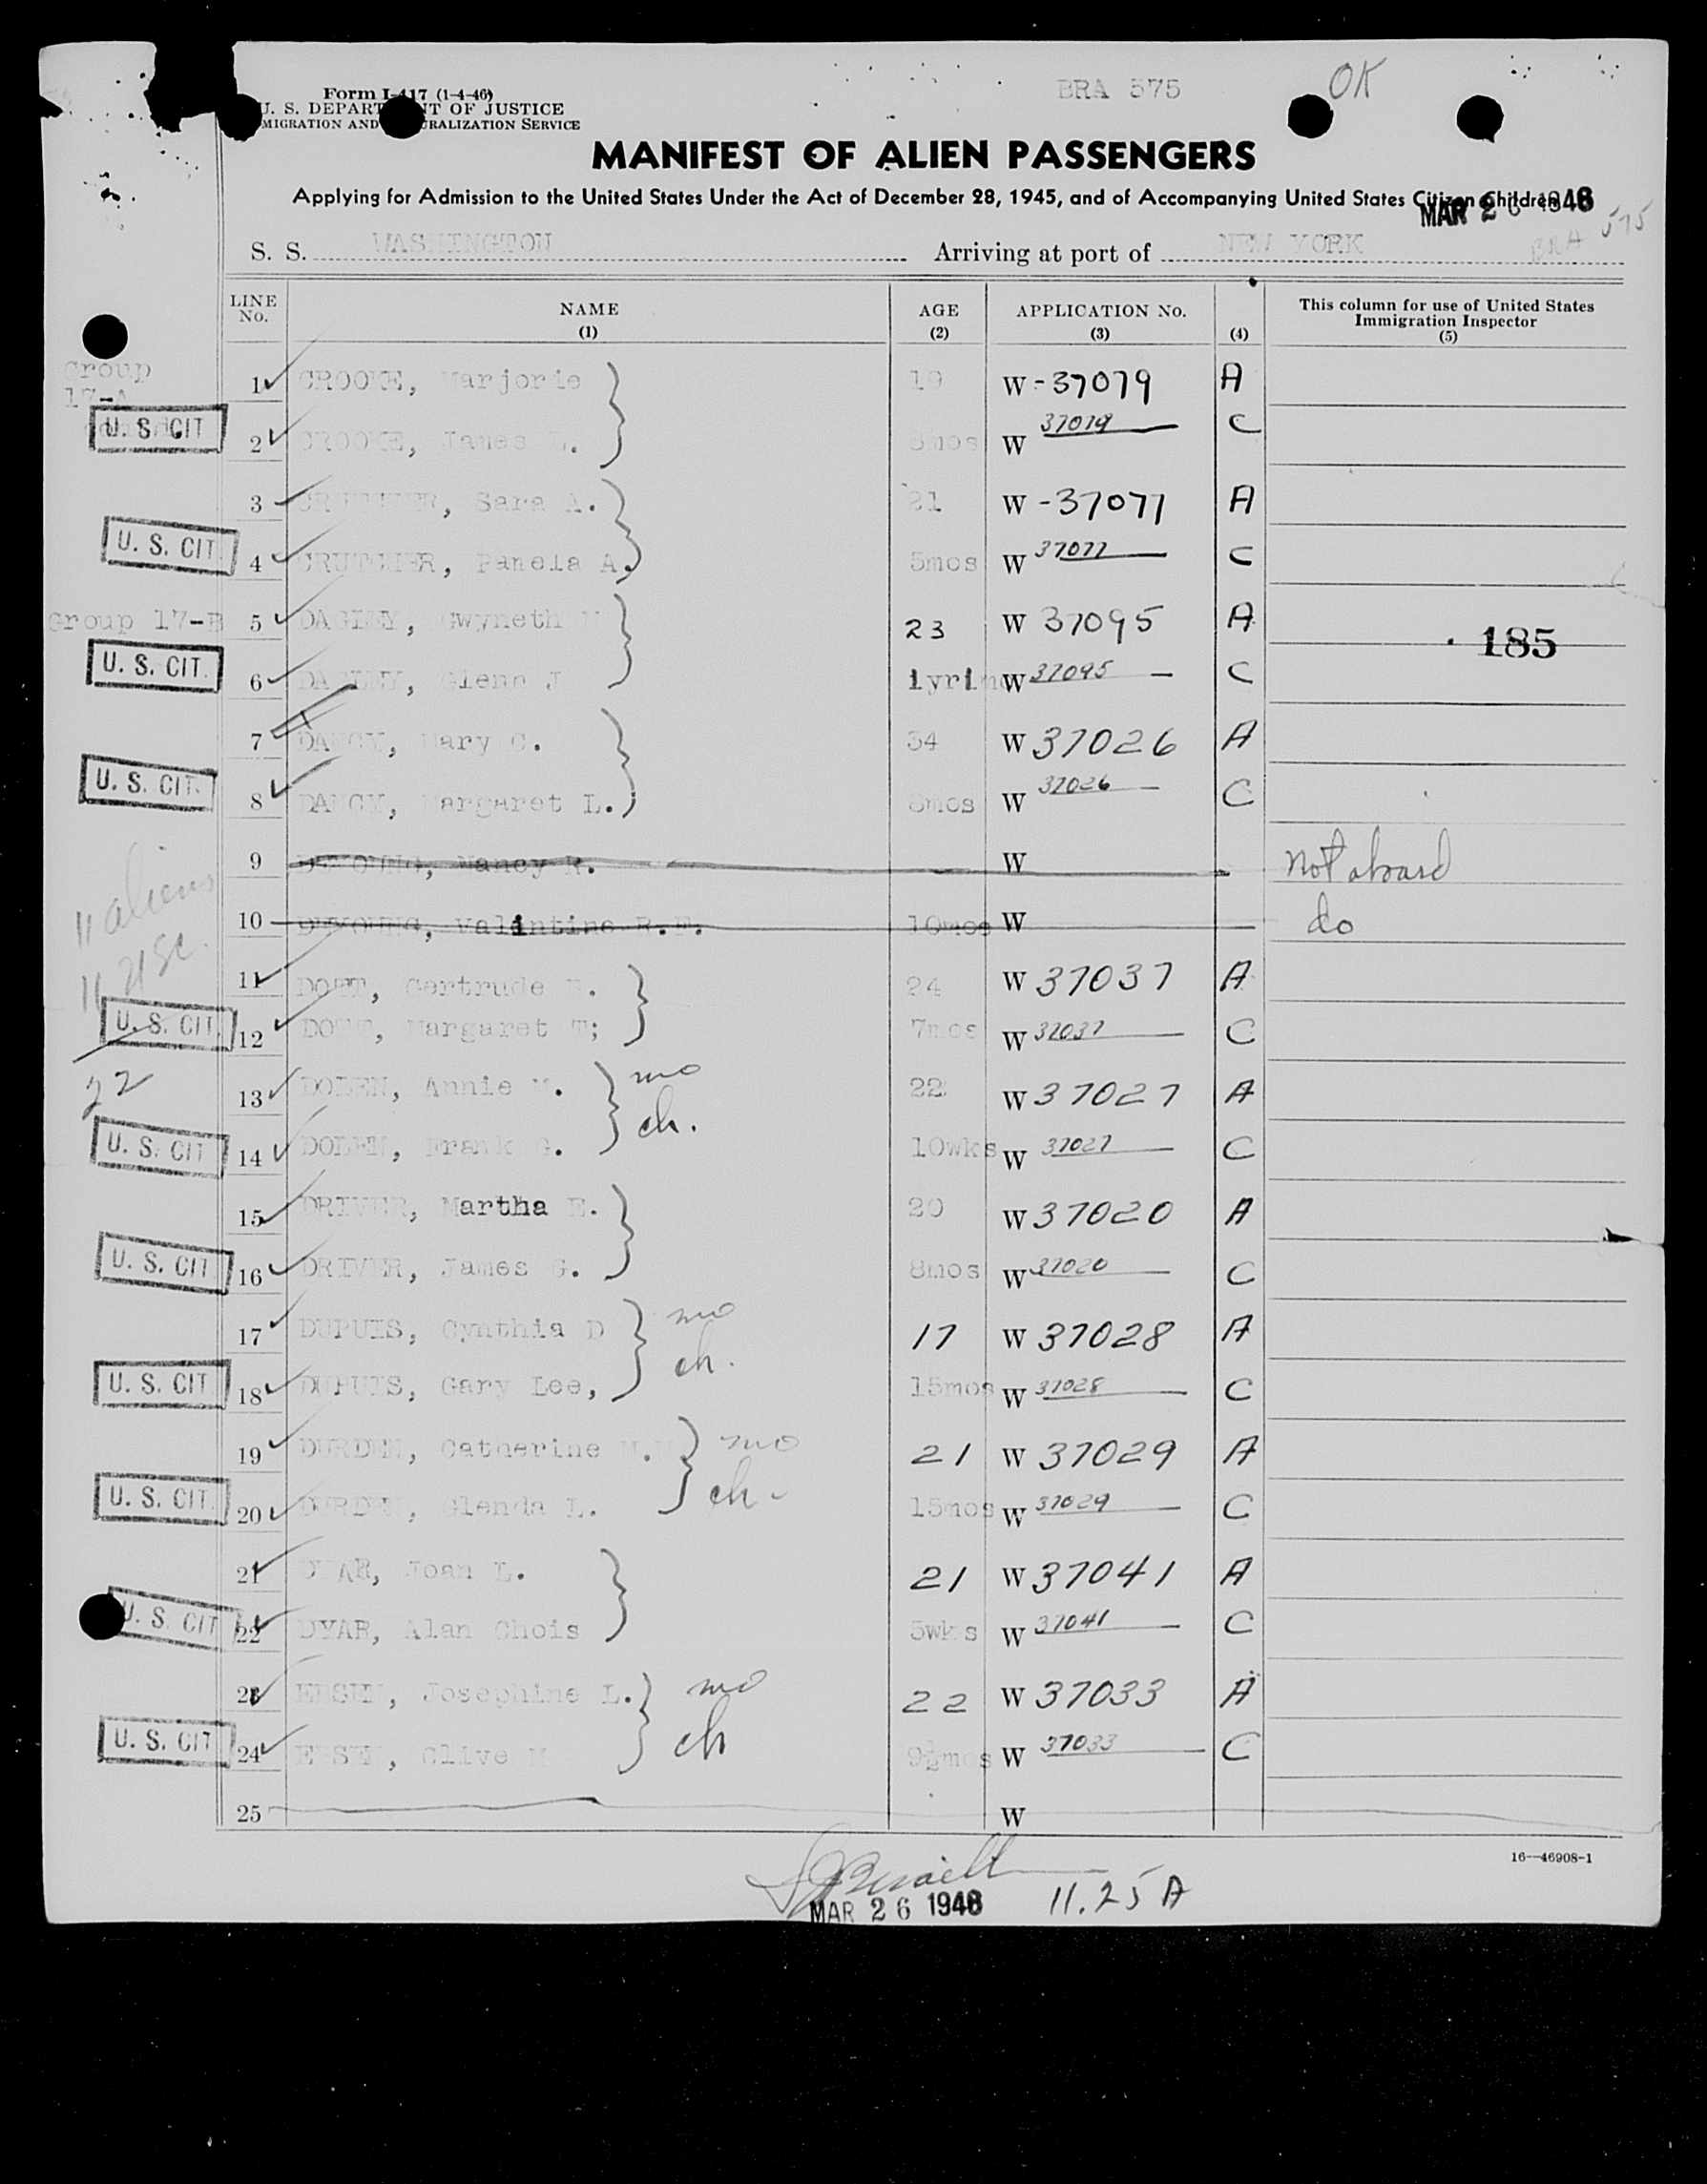 BRA 575 OK
Form I-417 (1-4-46)
U. S. DEPARTMENT OF JUSTICE
IMMIGRATION AND NATURALIZATION SERVICE
MANIFEST OF ALIEN PASSENGERS
Applying for Admission to the United States Under the Act of December 28, 1945, and of Accompanying United States Citizen Children
MAR 26 1946
BRA 575
S. S. WASHINGTON Arriving at port of NEW YORK
LINE No. NAME (1) AGE (2) APPLICATION No. (3) (4) This column for use of United States Immigration Inspector (5)
Group 17-A
1 CROOKE, Marjorie 19 W-37079 A
U. S. CIT 2 CROOKE, James L. 8mos W 37079 C
3 CRUTCHER, Sara A. 21 W-37077 A
U. S. CIT 4 CRUTCHER, Pamela A. 5mos W 37077 C
Group 17-B 5 Gwyneth 23 W 37095 A
185
U. S. CIT. 6 Glenn J 1yr1mo W 37095 C
7 DANCY, Mary C. 34 W 37026 A
U. S. CIT. 8 DANCY, Margaret L. 8mos W 37026 C
9 DEYOUNG, Nancy R. W Not aboard
11 aliens
10 DEYOUNG, Valintine R.F. 10mos W do
11 USC.
11 Gertrude 24 W 37037 A
U. S. CIT. 12 Margaret T; 7mos W 37037 C
22
13 DOLEN, Annie M. mo 22 W 37027 A
U. S. CIT 14 DOLEN, Frank G. ch. 10wks W 37027 C
15 DRIVER, Martha E. 20 W 37020 A
U. S. CIT 16 DRIVER, James G. 8mos W 37020 C
17 DUPUIS, Cynthia D mo 17 W 37028 A
U. S. CIT 18 DUPUIS, Gary Lee, ch. 15mos W 37028 C
19 DURDEN, Catherine mo 21 W 37029 A
U. S. CIT. 20 DURDEN, Glenda L. ch. 15mos W 37029 C
21 DYAR, Joan L. 21 W 37041 A
U. S. CIT 22 DYAR, Alan Chois 5wks W 37041 C
23 Josephine L. mo 22 W 37033 A
U. S. CIT 24 Clive ch 9½mos W 37033 C
25 W
16—46908-1
MAR 26 1946 11.25 A